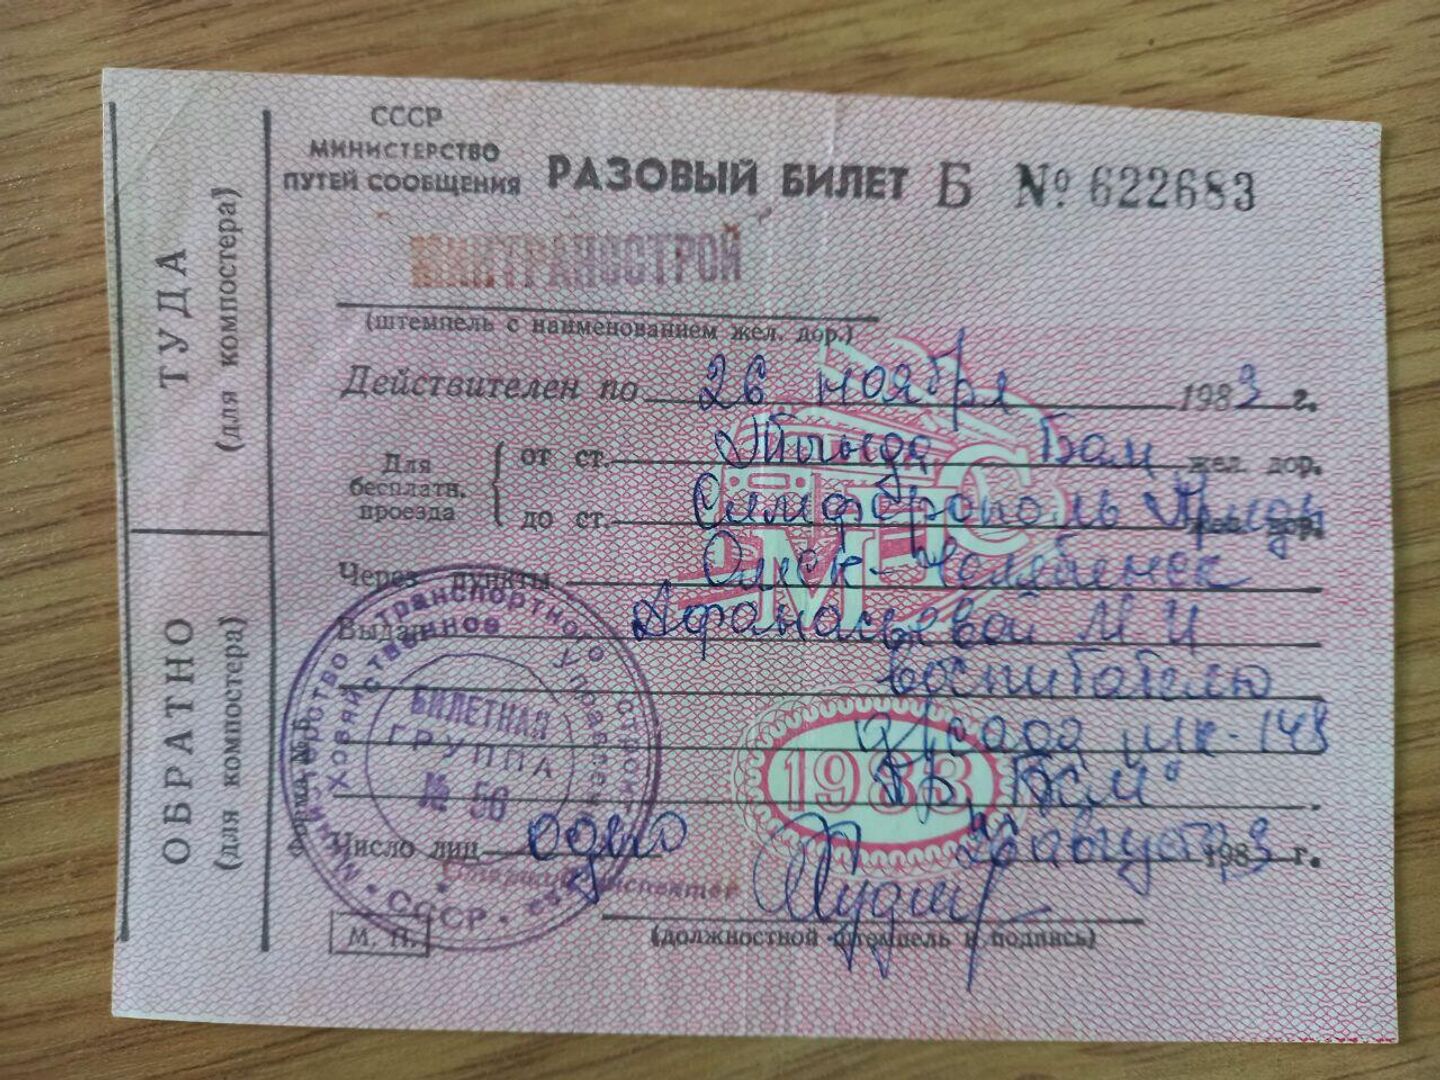 СССР
МИНИСТЕРСТВО
ПУТЕЙ СООБЩЕНИЯ
РАЗОВЫЙ БИЛЕТ Б № 622683
МИНТРАНССТРОЙ
(штемпель с наименованием жел. дор.)
Действителен по 26 ноября 1983 г.
Для бесплатн. проезда
от ст. Тында Бам жел. дор.
до ст. Симферополь жел. дор.
Через пункты Омск-Челябинск
Выдан Афанасьевой М И
воспитателю
д/сада
"Бам"
Число лиц одно
26 августа 1983 г.
Старший инспектор
(должностной штемпель и подпись)
М. П.
Форма № Б
ТУДА
(для компостера)
ОБРАТНО
(для компостера)
МНС
1983
Министерство транспортного строит
Хозяйственное Управлен
СССР
БИЛЕТНАЯ
ГРУППА
№ 50